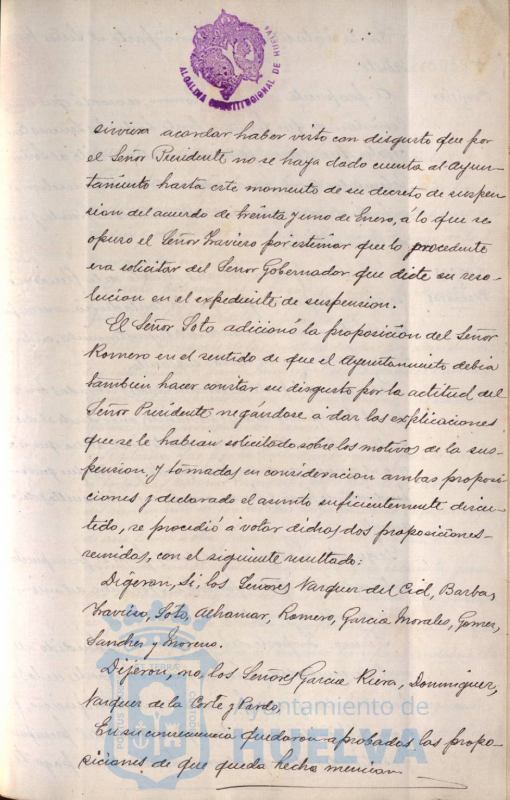 ALCALDIA CONSTITUCIONAL DE HUELVA
sirviera acordar haber visto con disgusto que por
el Señor Presidente no se haya dado cuenta al Ayun-
tamiento hasta este momento de su decreto de suspen-
sion del acuerdo de treinta y uno de Enero, á lo que se
opuso el Señor Travieso por estimar que lo procedente
era solicitar del Señor Gobernador que dicte su reso-
lucion en el expediente de suspension.
El Señor Soto adicionó la proposicion del Señor
Romero en el sentido de que el Ayuntamiento debia
tambien hacer constar su disgusto por la actitud del
Señor Presidente negándose á dar las explicaciones
que se le habian solicitado sobre los motivos de la sus-
pension, y tomadas en consideracion ambas proposi-
ciones y declarado el asunto suficientemente discu-
tido, se procedió á votar dichas dos proposiciones
reunidas, con el siguiente resultado:
Digeron, Si, los Señores Vazquez del Cid, Barba,
Travieso, Soto, Alhamar, Romero, Garcia Morales, Gomez,
Sanchez y Moreno.
Dijeron, no, los Señores Garcia Riera, Dominguez,
Vazquez de la Corte y Pardo.
En su consecuencia quedaron aprobadas las propo-
siciones de que queda hecha mencion.
PORTUS MARIS ET TERRAE CUSTODIA
Ayuntamiento de
HUELVA